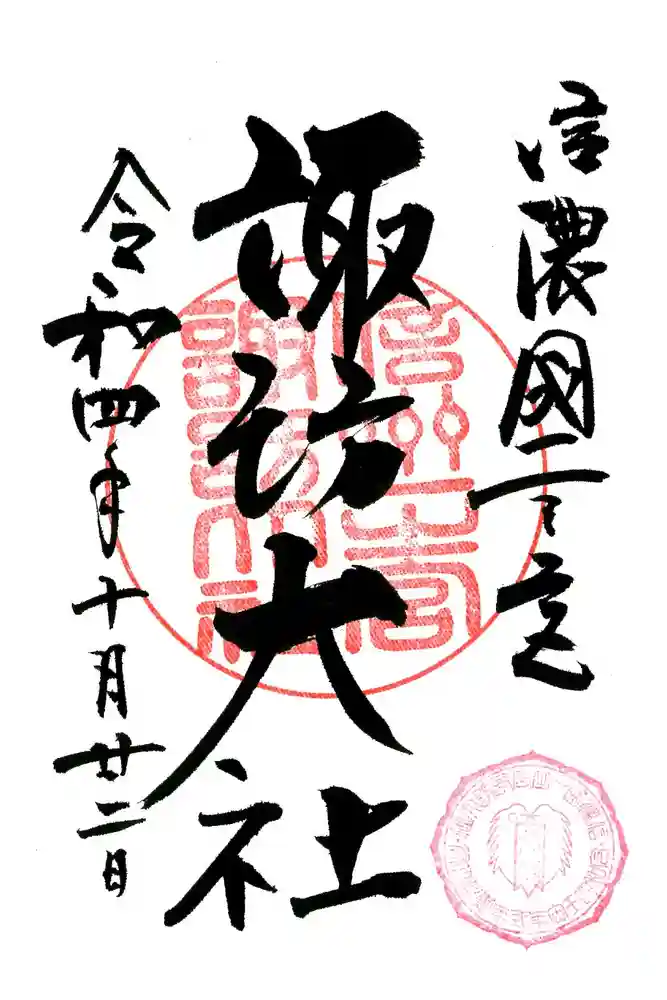 信濃國一之宮
諏訪大社
令和四年十月廿二日
信州一之宮
諏訪大社